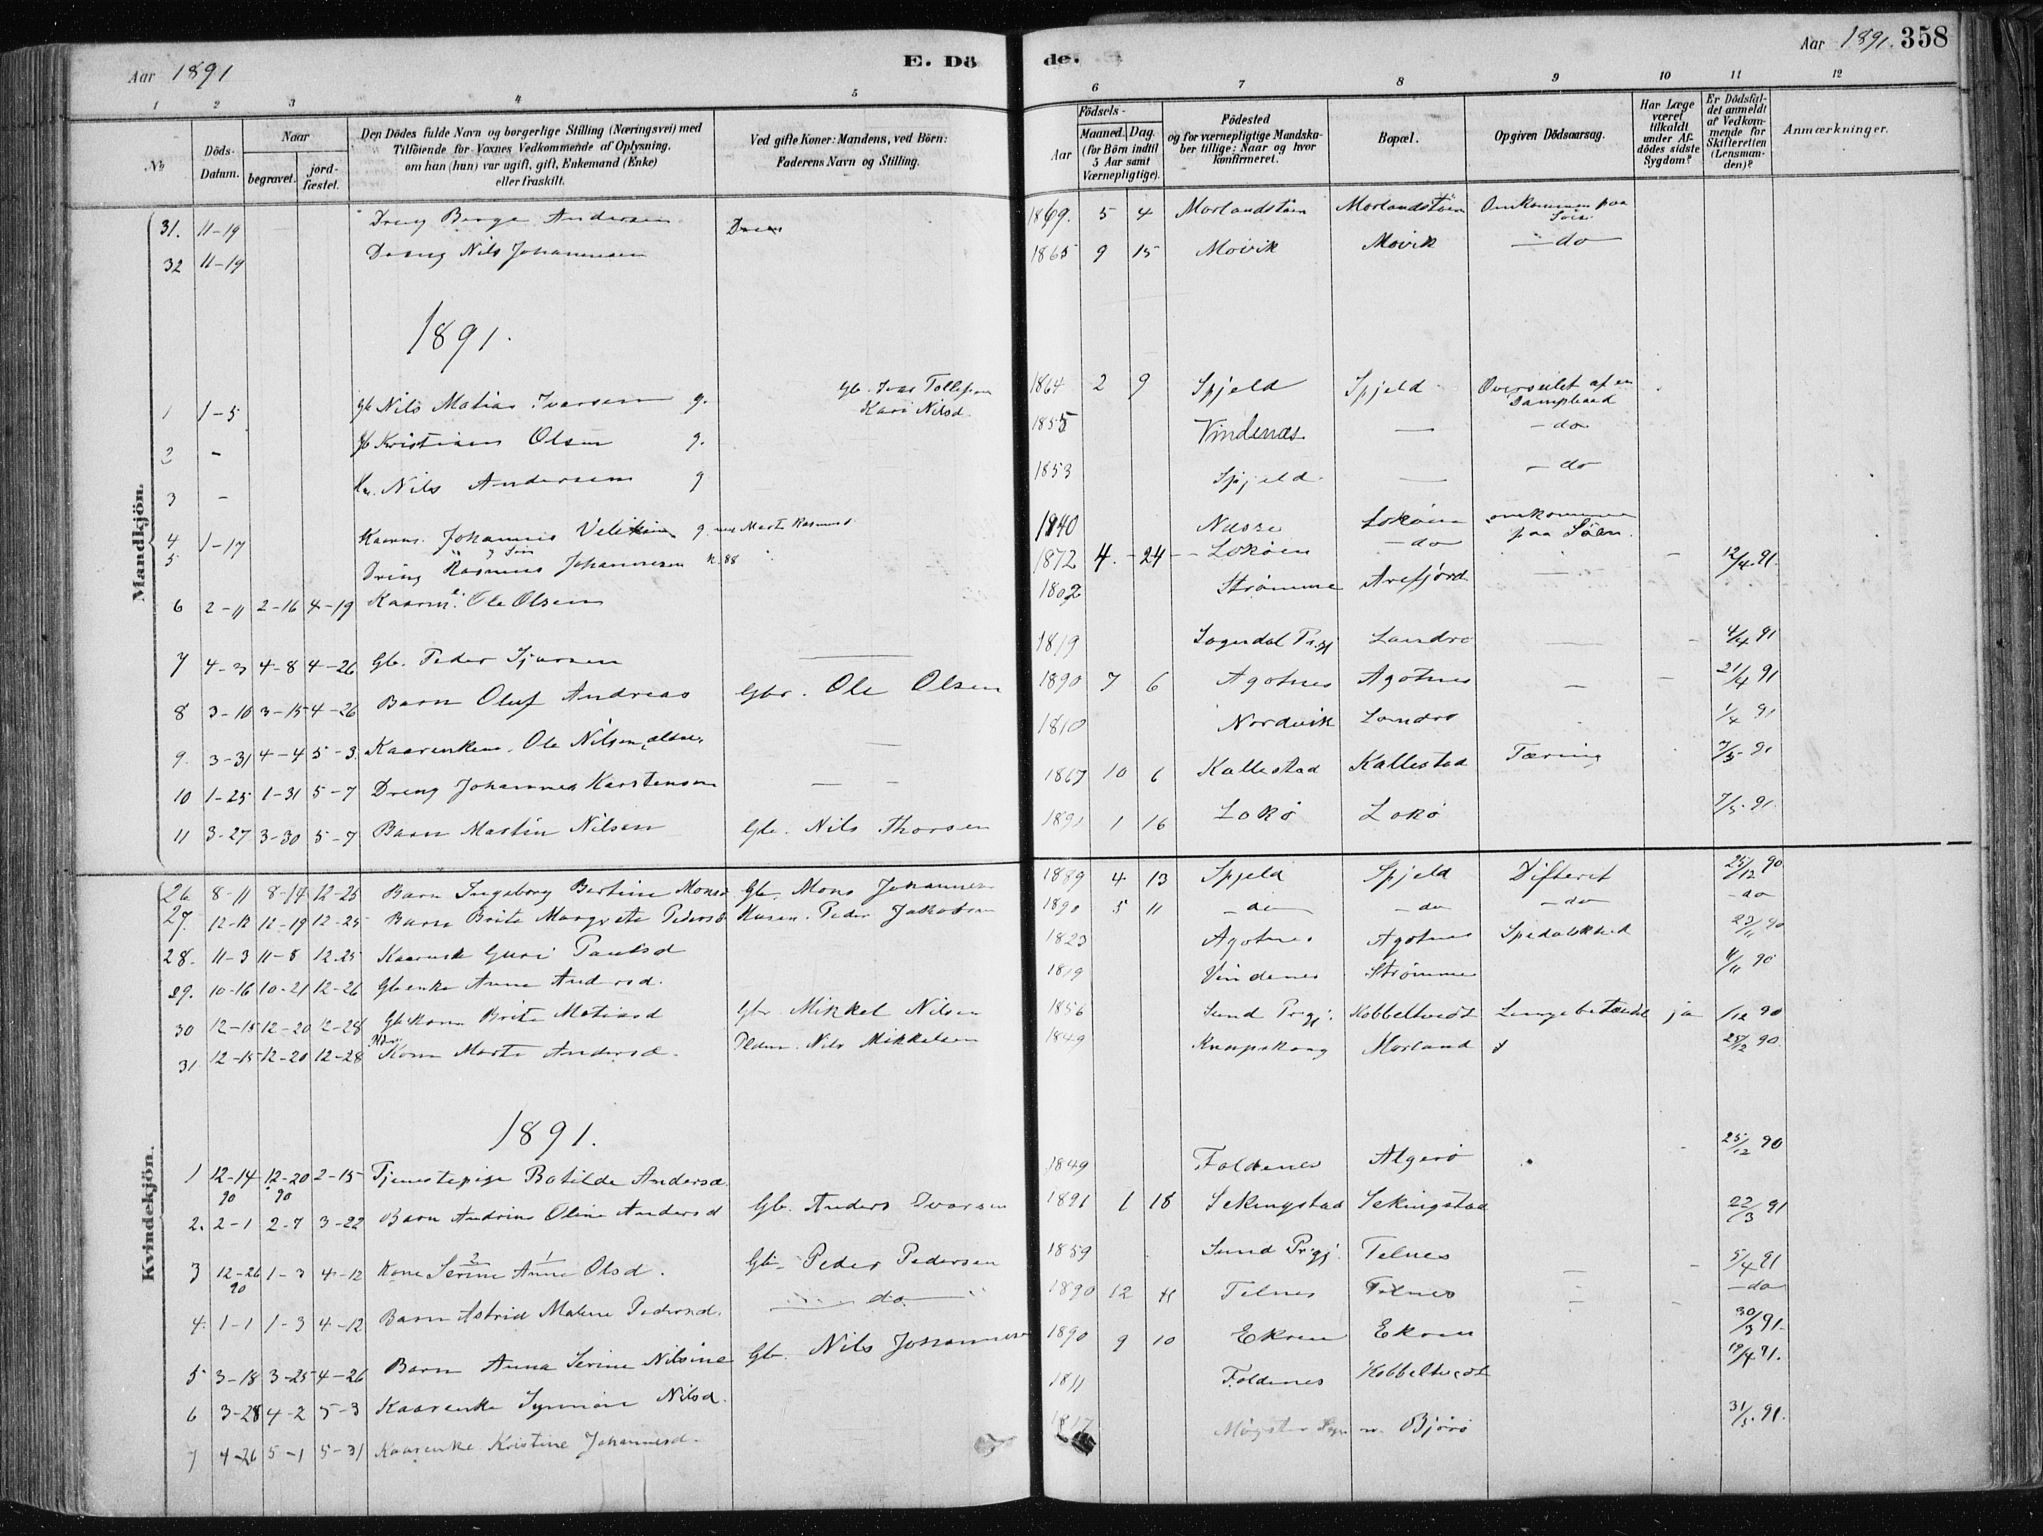 Aar 1891
E. Döde.
Aar 1891. 358
1 2 3 4 5 6 7 8 9 10 11 12
No
Döds-Datum.
Naar
begravet.
jord-fæstet.
Den Dödes fulde Navn og borgerlige Stilling (Næringsvei) med
Tilföiende for Voxnes Vedkommende af Oplysning.
om han (hun) var ugift, gift, Enkemand (Enke)
eller fraskilt.
Ved gifte Koner: Mandens, ved Börn:
Faderens Navn og Stilling.
Födsels-
Aar
Maaned. Dag.
(for Börn indtil
5 Aar samt
Værnepligtige).
Födested
og for værnepligtige Mandska-
ber tillige: Naar og hvor
konfirmeret.
Bopæl.
Opgiven Dödsaarsag.
Har Læge
været
tilkaldt
under Af-
dödes sidste
Sygdom?
Er Dödsfal-
det anmeldt
af Vedkom-
mende for
Skifteretten
(Lensman-
den)?
Anmærkninger.
Mandkjön.
31. 11-19 Dreng Berge Andersen 1869. 5 4 Morlandstöen Morlandstöen Omkommen paa Söen
32 11-19 Dreng Nils Johannesen 1865 9 15 Movik Movik - do
1891.
1 1-5 Gb Nils Matias Ivarsen g. Gb. Ivar Tollefsen Kari Nilsd. 1864 2 9 Spjeld Spjeld Overseilet af en Dampbaad
2 - Gb Kristian Olsen g. 1855 Vindenæs — - do
3 - Nils Andersen g 1853 Spjeld — - do
4 1-17 Kaarm. Johannes g. Marta Rasmusd 1840 Loköen omkommen paa Söen.
5 Dreng Rasmus Johannesen k. 88 1872 4. - 24 Lokøen - do 12/4.91.
6 2-11 2-16 4-19 Kaarm. Ole Olsen 1802 Strømme Arefjord
7 4-3 4-8 4-26 Gb. Peder 1819 Sogndal Prgj Landro 4/4 91
8 3-10 3-15 4-26 Barn Oluf Andreas Gbr. Ole Olsen 1890 7 6 Agotnes Agotnes 21/4 91
9. 3-31 4-4 5-3. Ole Nilsen 1810 Nordvik Landro 1/4 91
10 1-25 1-31 5-7 Dreng Johannes Karstensen 1867 10 6 Kallestad Kallestad Tæring 7/5 91
11 3-27 3-30 5-7 Barn Martin Nilsen Gb. Nils Thorsen 1891 1 16 Lokö Lokö 7/5.91.
Kvindekjön.
26 8-11 8-14 12-25 Barn Ingeborg Bertine Monsd Gb. Mons Johannesen 1889 4 13 Spjeld Spjeld Difterit 25/12 90
27. 12-12 12-19 12-25 Barn Brite Margrete Pedersd Husm. Peder Jakobsen 1890 5 11 - do - do - do - do
28. 11-3 11-8 12.25 Kaarenke Guri Paulsd 1823 Agotnes Agotnes Spedalskhed 23/11 90
29. 10-16 10-21 12-26 Gb enke Anna Andersd. 1819 Vindenes Strømme 4/11 90
30 12-15 12-20 12-28 Gb Kone Brite Matiasd Gbr Mikkel Nilsen 1856 Sund Prgj. Kobbeltvedt Lungebetændelse ja 1/12 90
31. 12-15 12-20 12-28 Kone Marta Andersd. Nils Mikkelsen 1849 Knapskong Morland 28/12 90.
1891.
1 12-14 90 12-20 90 2-15 Tjenestepige Botilde Andersd. 1849 Foldenes Algerö 25/12 90
2. 2-1 2-7 3-22 Barn Andrine Oline Andersd Gb. Anders Ivarsen 1891 1 18 Sekingstad Sekingstad 22/3 91
3 12-26 90 1-3 4-12 Kone Serine 2 Anna 1 Olsd. Gb. Peder Pedersen 1859 Sund Prgj. Telnes 5/4 91
4. 1-1 1-3 4-12 Barn Astrid Malene Pedersd. do 1890 12 Telnes Telnes - do
5 3-18 3-25 4-26 Barn Anna Serine Nilsine Gb. Nils Johannesen 1890 9 10 Ekren Ekren 30/3 91.
6 3-28 4-2 5-3 Kaarenke Synnöve Nilsd. 1811 Foldenes Kobbeltvedt 19/4 91.
7 4-26 5-1 5-31 Kaarenke Kristine Johannesd. 1817 Møgster Bjørø 31/5.91.